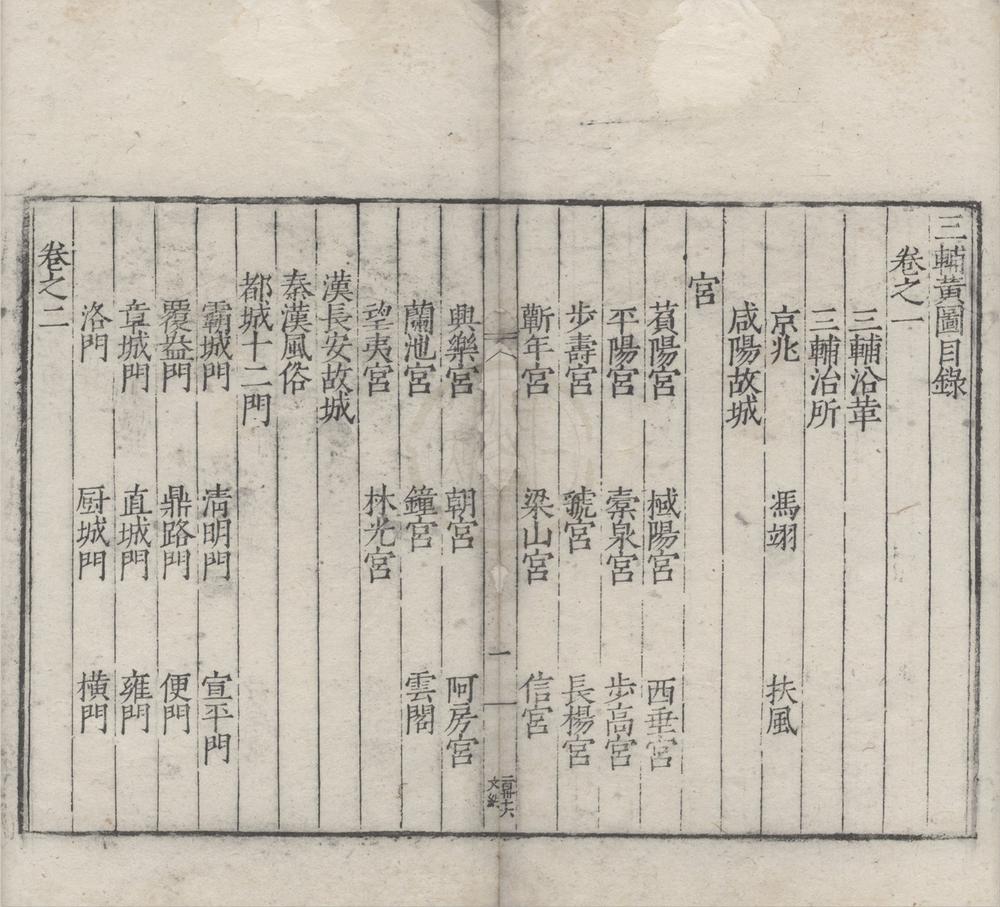 三輔黃圖目錄
卷之一
三輔沿革
三輔治所
京兆 馮翊 扶風
咸陽故城
宮
萯陽宮 棫陽宮 西垂宮
平陽宮 橐泉宮 步高宮
步壽宮 虢宮 長楊宮
蘄年宮 梁山宮 信宮
一
興樂宮 朝宮 阿房宮
蘭池宮 鐘宮 雲閣
望夷宮 林光宮
漢長安故城
秦漢風俗
都城十二門
霸城門 清明門 宣平門
覆盎門 鼎路門 便門
章城門 直城門 雍門
洛門 厨城門 橫門
卷之二